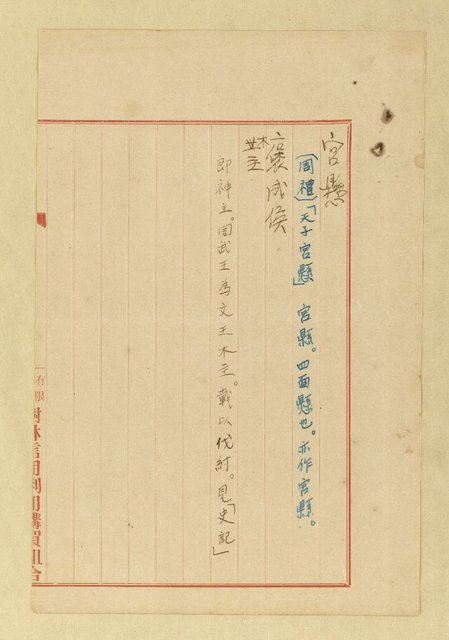 宮懸
〔周禮〕「天子宮懸」 宮縣。四面懸也。亦作宮縣。
褒成侯
木主
即神主。周武王為文王木主。載以伐紂。見「史記」
有限
樹林信用利用購買組合